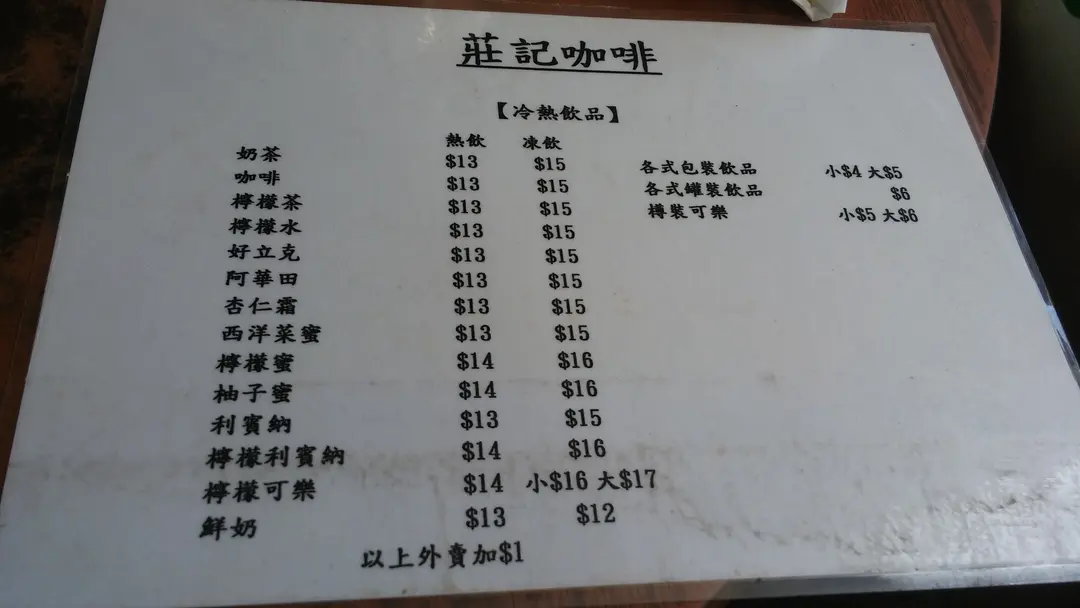 莊記咖啡
【冷熱飲品】
熱飲 凍飲
奶茶 $13 $15
咖啡 $13 $15
檸檬茶 $13 $15
檸檬水 $13 $15
好立克 $13 $15
阿華田 $13 $15
杏仁霜 $13 $15
西洋菜蜜 $13 $15
檸檬蜜 $14 $16
柚子蜜 $14 $16
利賓納 $13 $15
檸檬利賓納 $14 $16
檸檬可樂 $14 小$16 大$17
鮮奶 $13 $12
以上外賣加$1
各式包裝飲品 小$4 大$5
各式罐裝飲品 $6
樽裝可樂 小$5 大$6